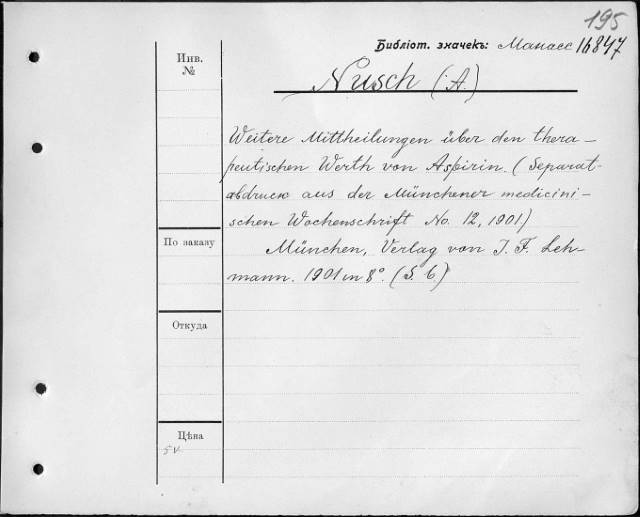 195
Библіот. значекъ: Манасс 16847
Инв.
№
Nusch (A.)
Weitere Mittheilungen über den thera-
peutischen Werth von Aspirin. (Separat-
abdruck aus der Münchener medicini-
schen Wochenschrift No. 12, 1901)
По заказу
München, Verlag von J. F. Leh-
mann. 1901 in 8°. (S. 6)
Откуда
Цѣна